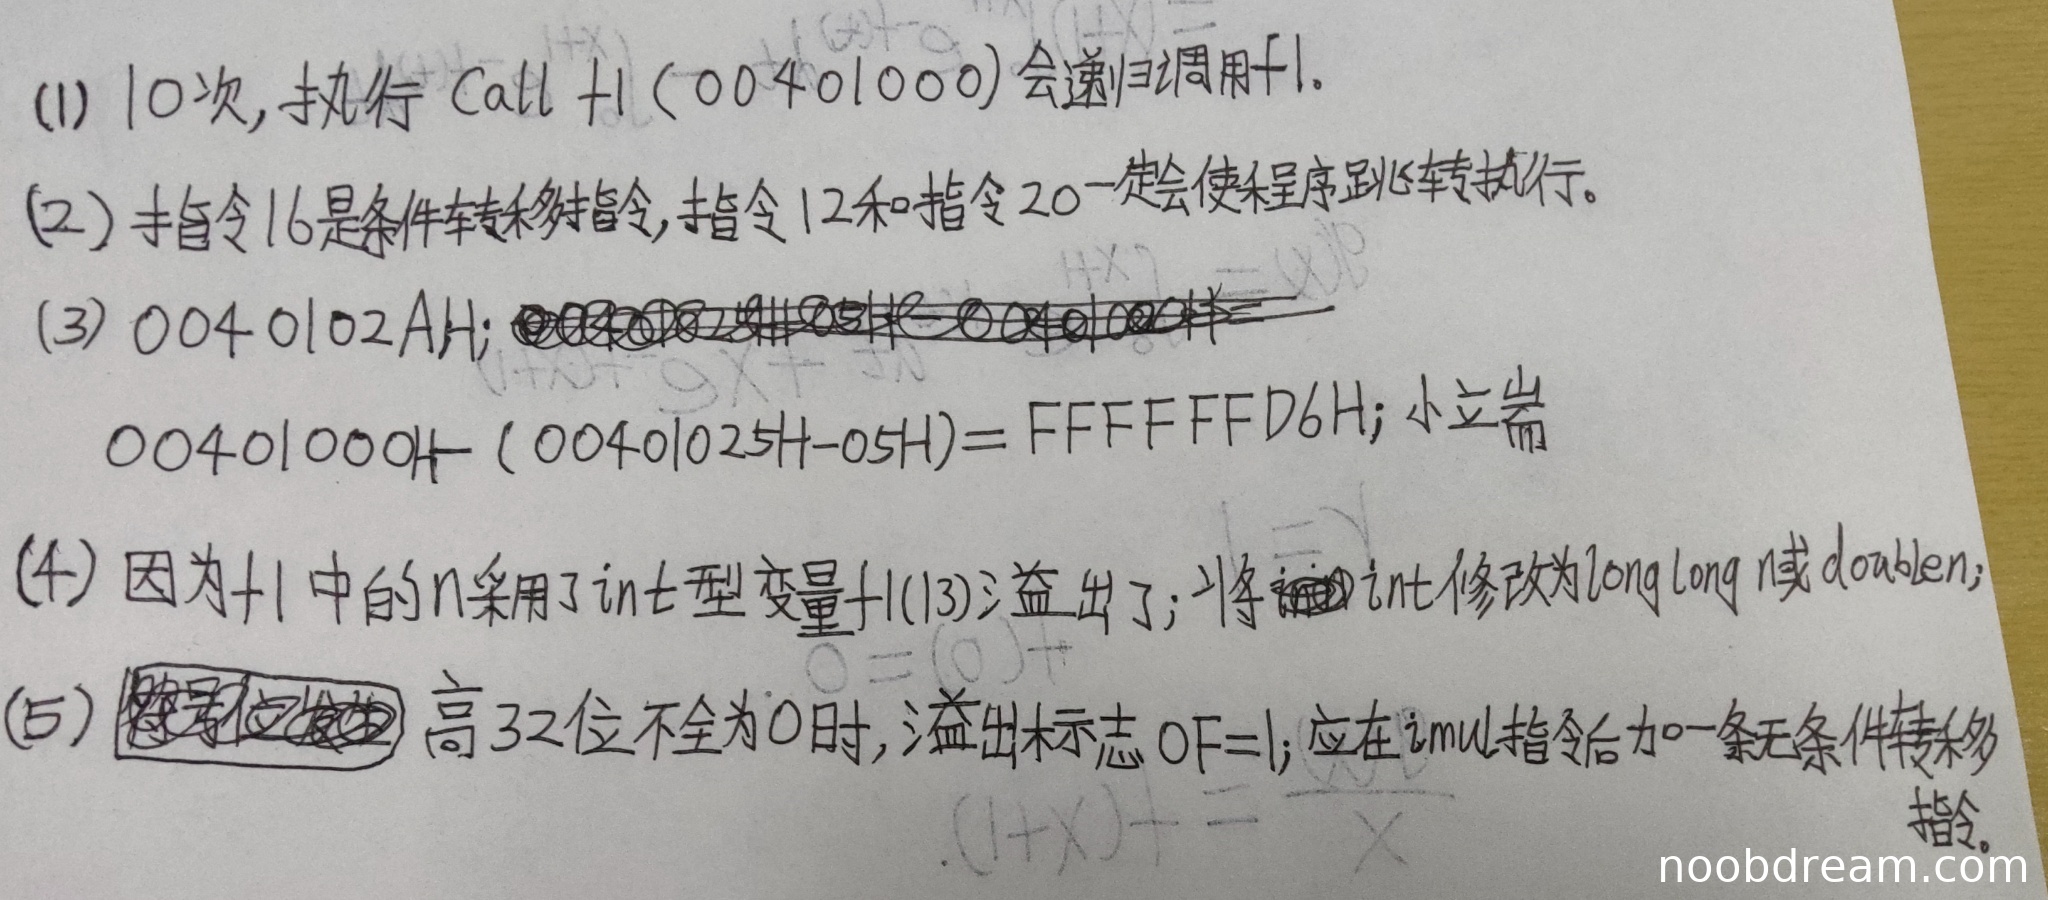 (1) 10次,执行 Call f1(00401000)会递归调用f1.
(2) 指令16是条件转移指令,指令12和指令20一定会使程序跳转执行。
(3) 0040102AH;
00401000H-(00401025H-05H)=FFFFFFD6H;小立端
(4) 因为f1中的n采用了int型变量f1(13)溢出了;将int修改为long long n或doublen;
(5) 高32位不全为0时,溢出标志OF=1;应在imul指令后加一条无条件转移
指令。
noobdream.com